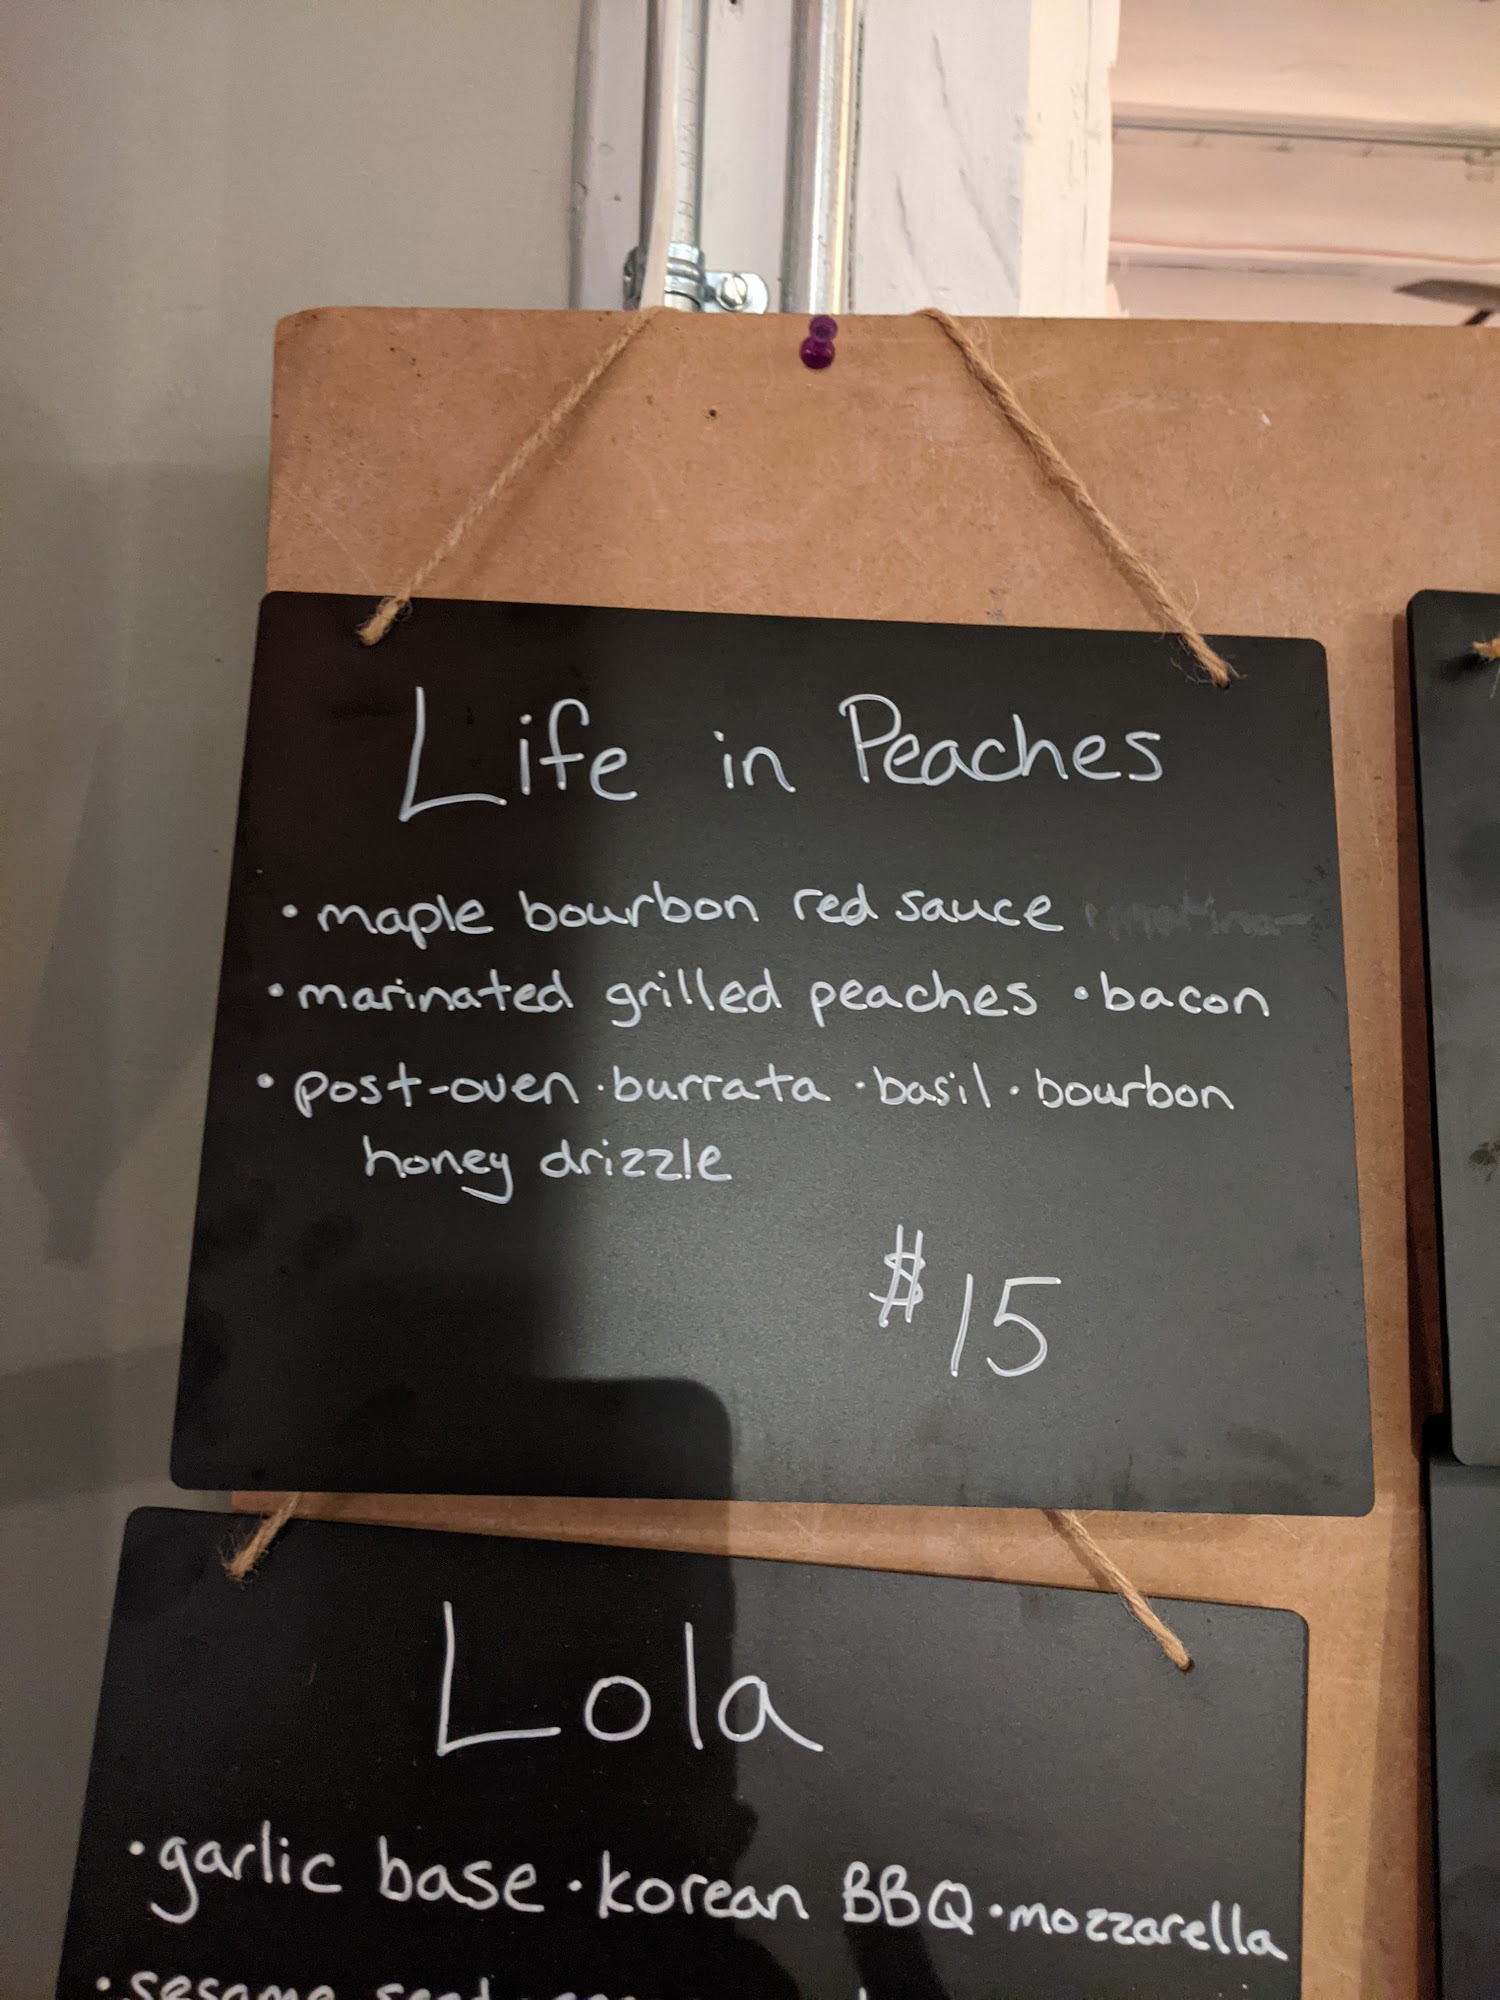 Life in Peaches
• maple bourbon red sauce
• marinated grilled peaches • bacon
• post-oven • burrata • basil • bourbon
honey drizzle
$15
Lola
• garlic base • korean BBQ • mozzarella
• sesame seed